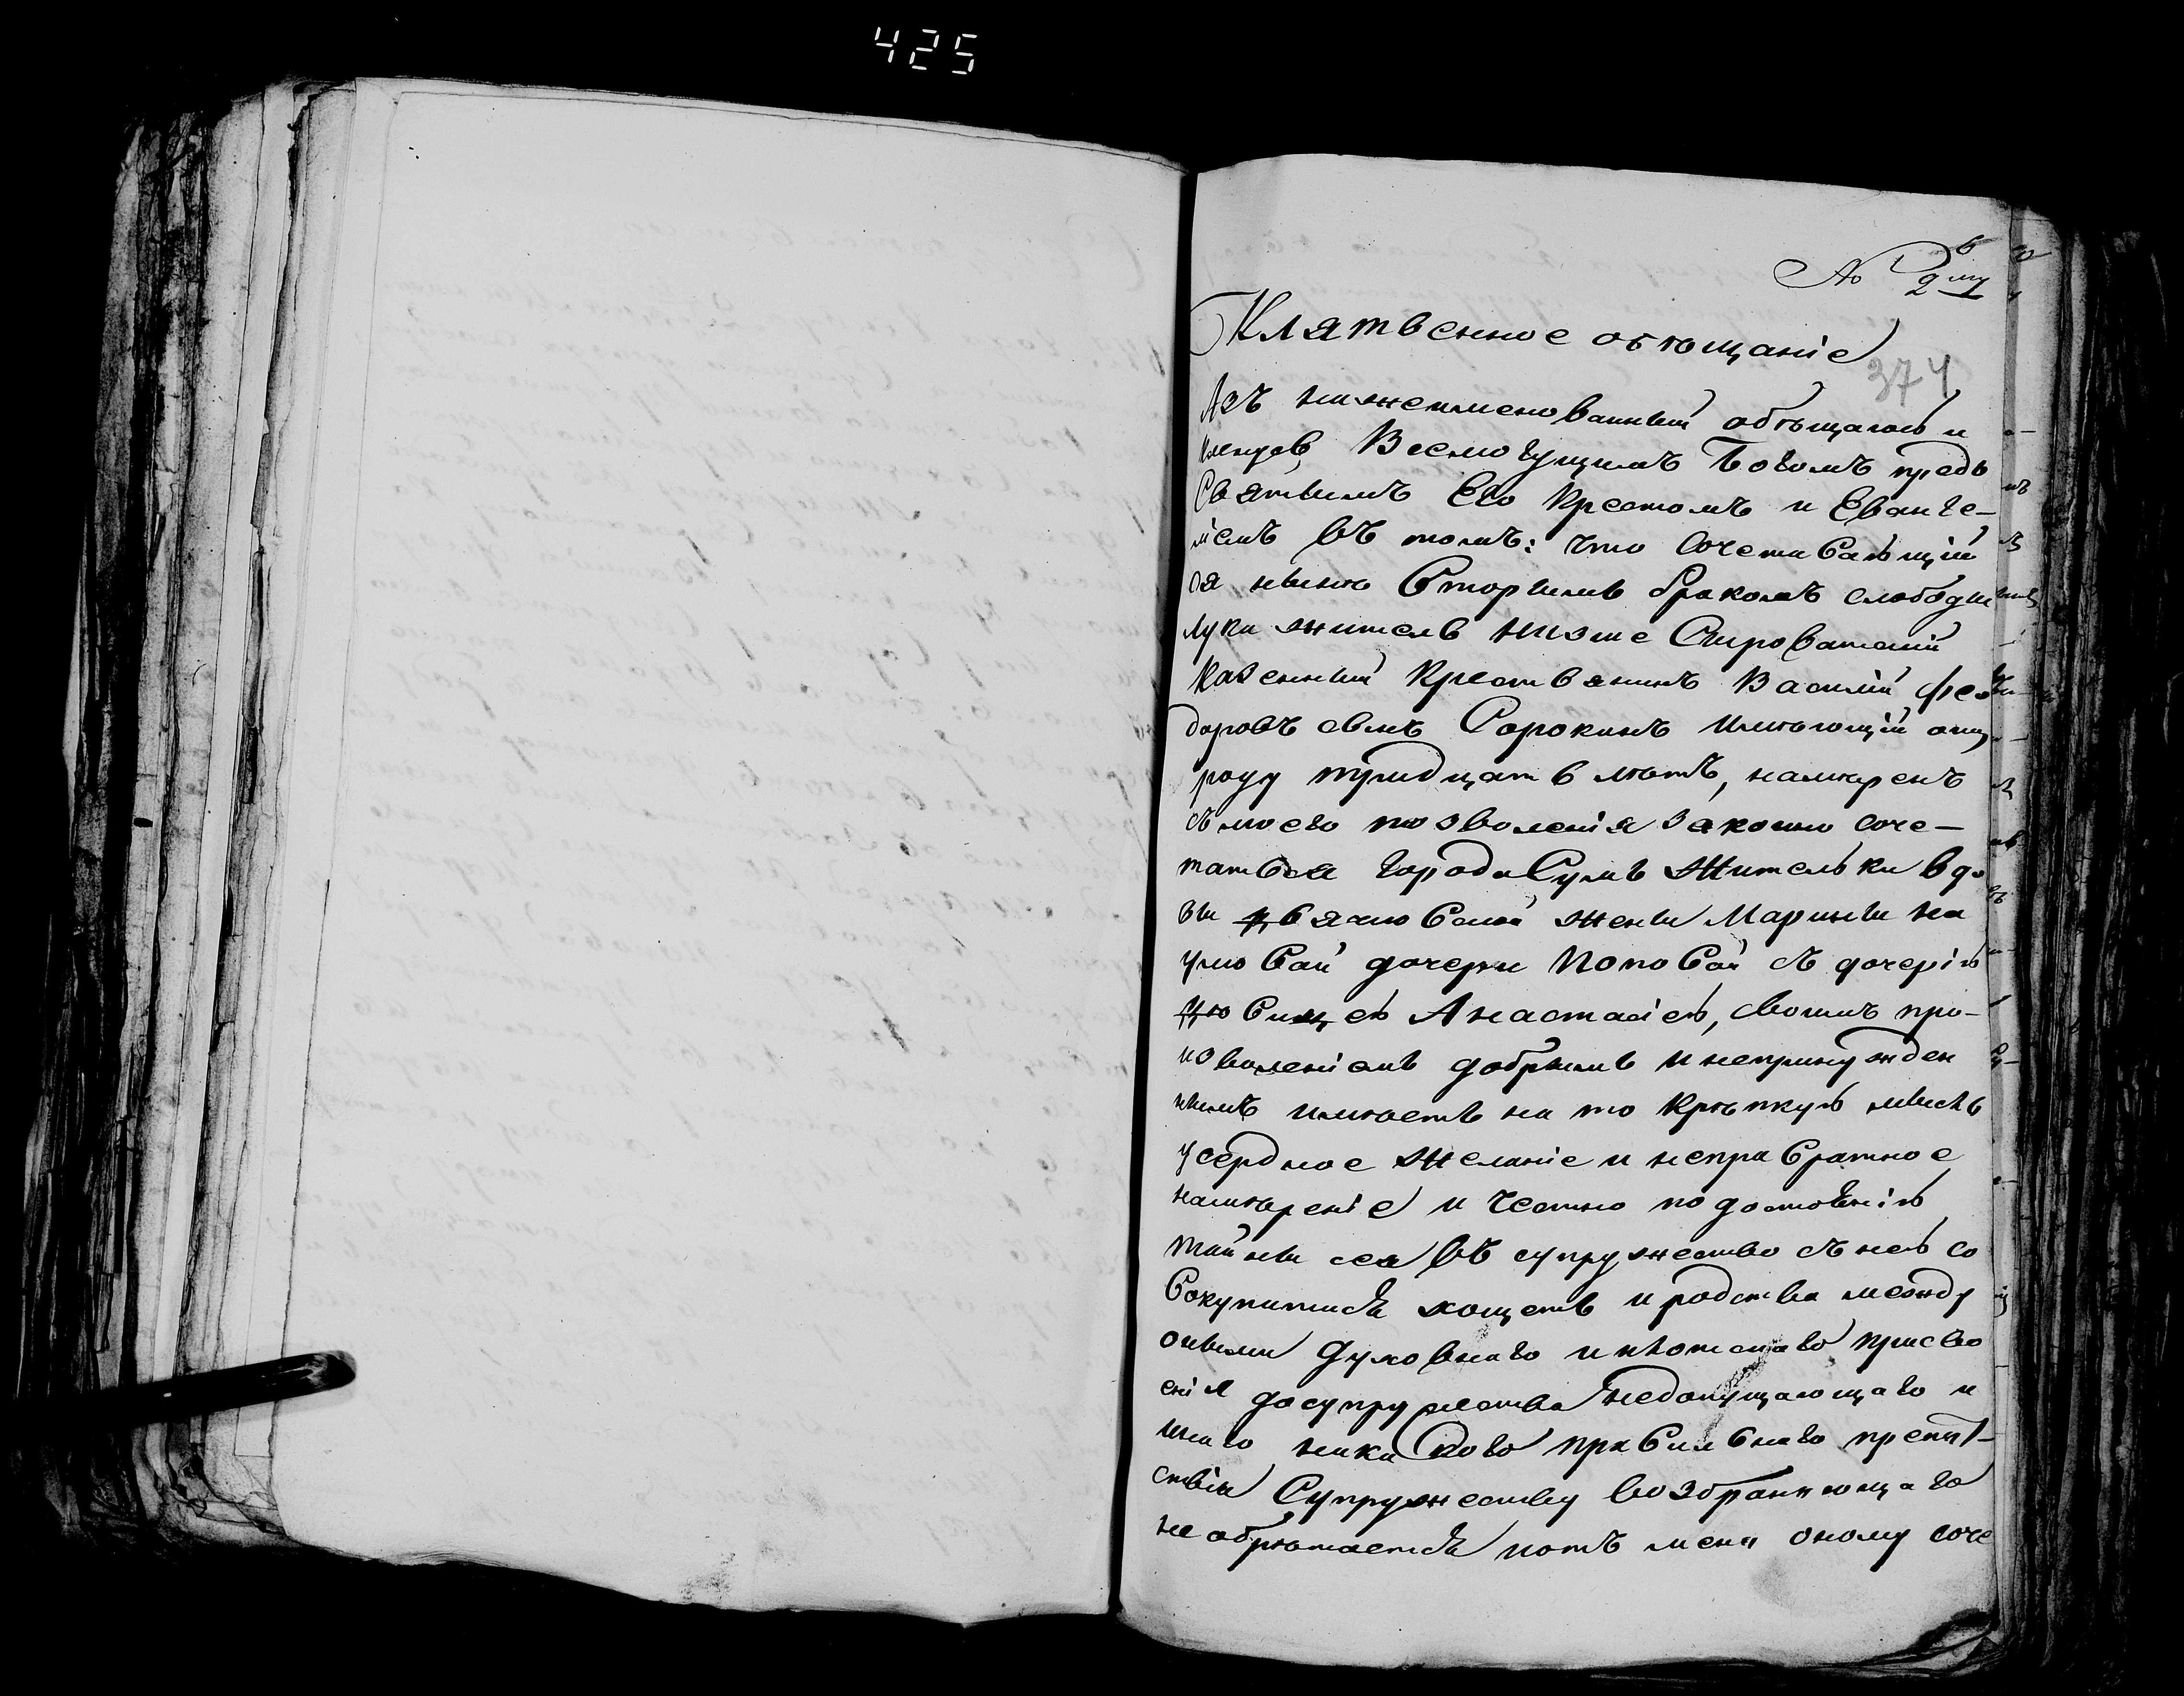 425
No 2му
6
Клятвенное обѣщаніе
374
Азъ нижеименованный обѣщаюсь и
кленусь Всемогущимъ Богомъ предъ
Святымъ Его Крестомъ и Еванге-
ліемъ въ томъ: что сочетавающій
ся нынѣ вторымъ бракомъ слободы
луки житель ниже Сыроватской
казенный крестьянинъ Василій Фео
доровъ сынъ Сорокинъ имѣющій отъ
роду тридцать лѣтъ, намѣренъ
съ моего позволенія законно соче-
таться города Сумъ жительки вдо
вы жены Марины На
умовой дочери Поповой съ дочерію
Анастасіею, своимъ про-
изволеніемъ добрымъ и непринужден
нымъ имѣетъ на то крѣпкую мысль
усердное желаніе и неправратное
намѣреніе и честно по достоенію
тайны сея въ супружество съ нею со
вокупитися хощетъ и родства между
оными духовнаго и плотскаго присво
енія до супружества недопущающаго и
инаго никаковo правильнаго препят-
ствія супружеству возбраняющаго
не обрѣтается и отъ меня оному соче